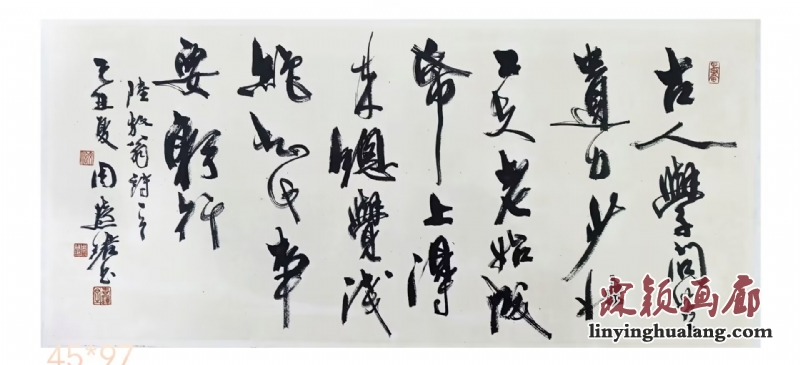 古人學問無
遺力少壯
工夫老始成
帋上得
来總覺淺
絶知此事
要躬行
陸放翁詩
己丑夏 周慧珺书
霖颖画廊
linyinghualang.com
45*97